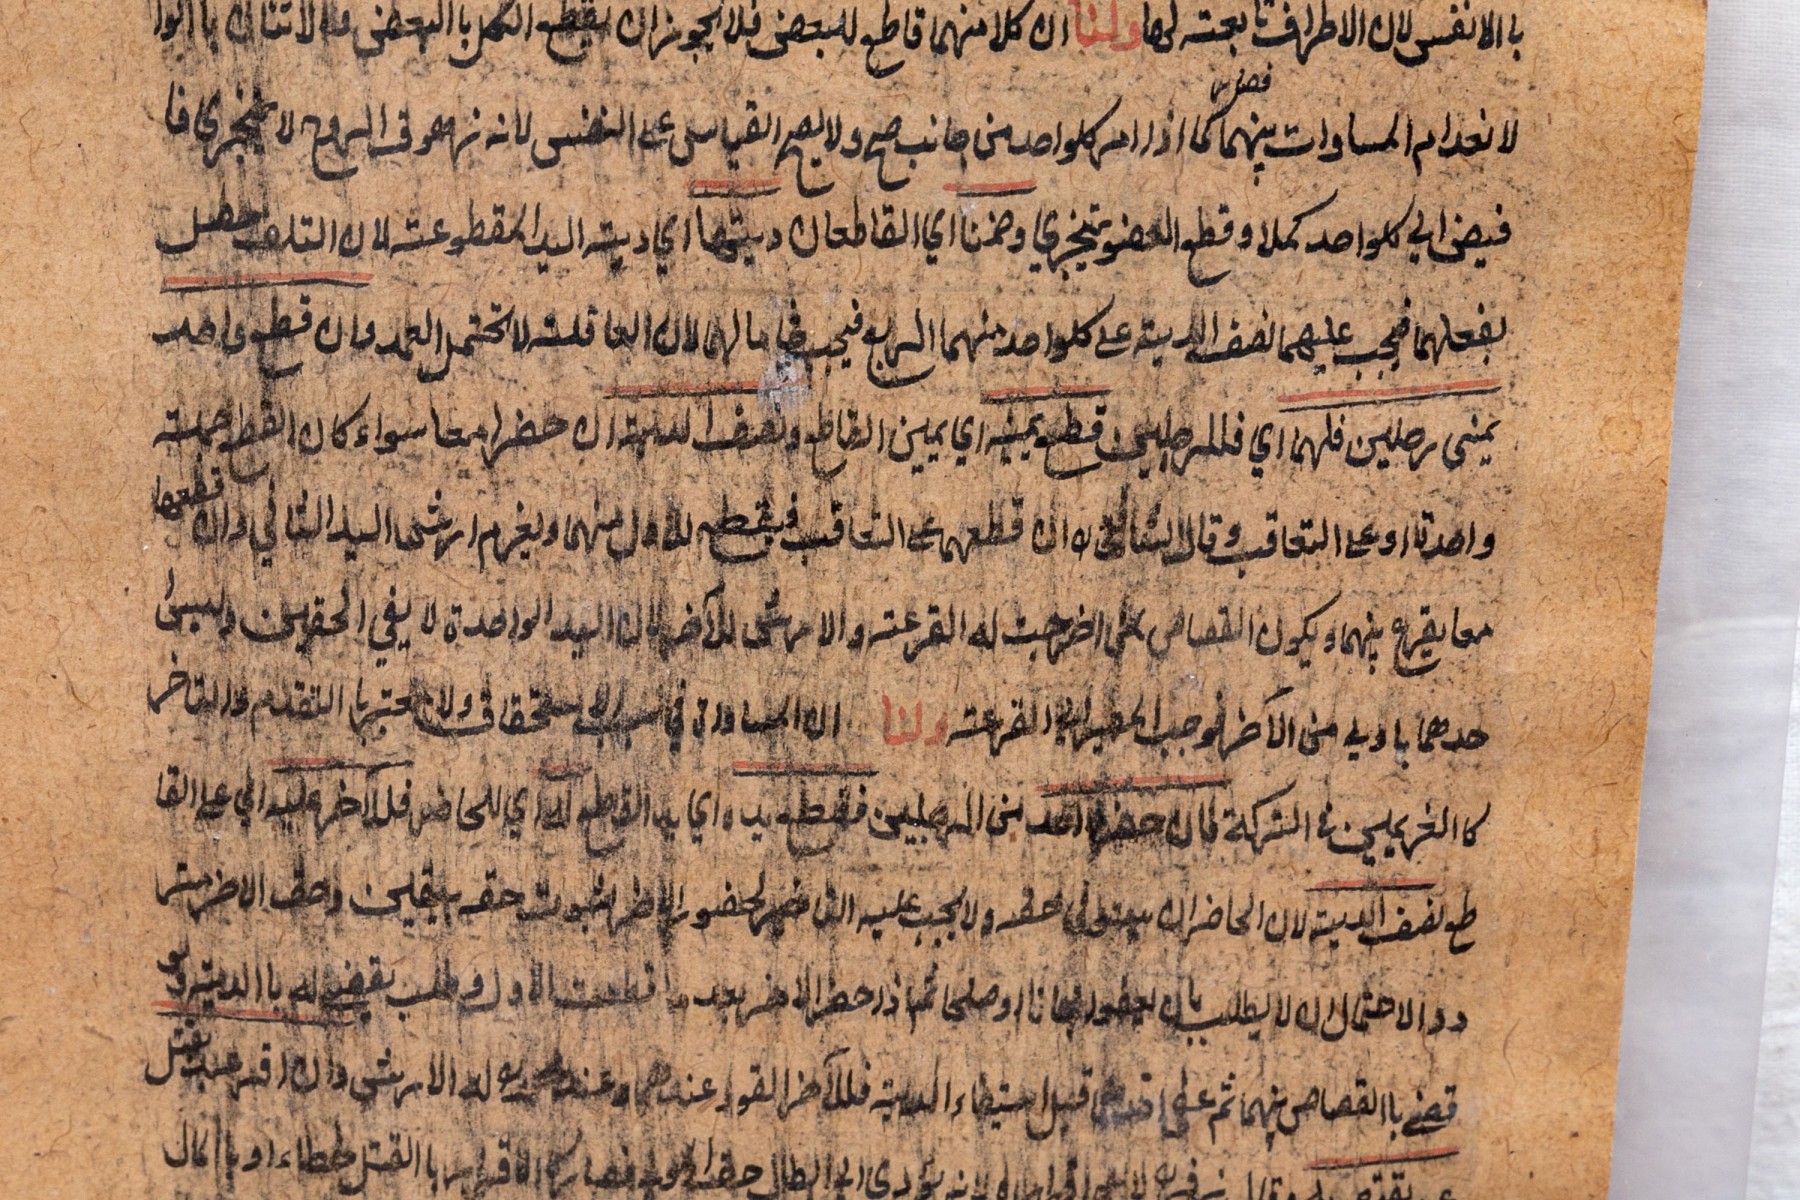 با الانفس لان الاطراف تابعته لها ولنا ان كلا منهما قاطع للبعض فلا يجوز ان يقطع الكل با البعض
فصل
لا نعدام المساوات بينهما كما اذا امر كلواحد من جانب صح ولا يصح القياس على النفس لانه زهوق الروح لا يتجزي فا
فيضاف الي كلواحد كملا وقطع العضو يتجزي وضمنا اي القاطعان ديتها اي ديته اليد المقطوعته لان التلف حصل
بفعلهما فيجب عليهما نصف الديته على كلواحد منهما الربع فيجب في مالهما لان العاقلته لا تحتمل العمد وان قطع واحد
يمنى رجلين فلهما اي فللرجلين قطع يمينه اي يمين القاطع ونصف الديته ان حضرا معا سواء كان القطع جملته
واحدة او على التعاقب وقال الشافعي ان قطعهما على التعاقب يقطع للاول منهما ويغرم ارش اليد الثاني وان قطعها
معا يقرع بينهما ويكون القصاص لمن اخرجت له القرعته والارش للآخر لان اليد الواحدة لا يفي الحقين وليس
حدهما باولى من الآخر فوجب المصير الي القرعته ولنا ان المساواة في سبب الاستحقاق ولا يعتبر با التقدم والتاخر
كا الغريمين في التركة فان حضر احد من الرجلين فقطع يده اي يد القاطع له اي للحاضر فللآخر عليه اي على القا
طع نصف الديته لان الحاضر ان يستوفي حقه ولا يجب عليه التاخير لحضور الاخر لثبوت حقه بيقين وحق الاخر متر
دد الاحتمال ان لا يطلب بان يعفو مجانا او صلحا ثم اذا حضر الاخر بعد ما قطعت الاول وطلب يقضي له با الديته ولو
قضي با القصاص بينهما ثم عفى احدهما قبل استيفاء الديته فللآخر القود عندهما وعند محمد له الارش وان اقر عبد بقتل